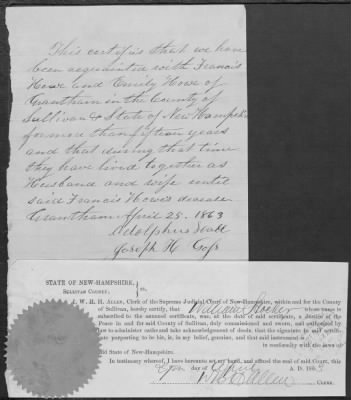 This certifies that we have
been acquainted with Francis
Howe and Emily Howe of
Grantham in the County of
Sullivan & State of New Hampshire
for more than fifteen years
and that during that time
they have lived together as
Husband and wife until
said Francis Howes decease
Grantham April 25. 1863
Adolphus Hall
Joseph H
STATE OF NEW-HAMPSHIRE,
SULLIVAN COUNTY, ss.
I, W. H. H. ALLEN, Clerk of the Supreme Judicial Court of New-Hampshire, within and for the County
of Sullivan, hereby certify, that William whose name is
subscribed to the annexed certificate, was, at the date of said certificate, a Justice of the
Peace in and for said County of Sullivan, duly commissioned and sworn, and authorized by
law to administer oaths and take acknowledgement of deeds. that the signature to said certifi-
cate purporting to be his, is, in my belief, genuine, and that said instrument is
in conformity with the laws of
said State of New-Hampshire.
In testimony whereof, I have hereunto set my hand, and affixed the seal of said Court, this
day of April A. D. 186
W H H Allen CLERK.